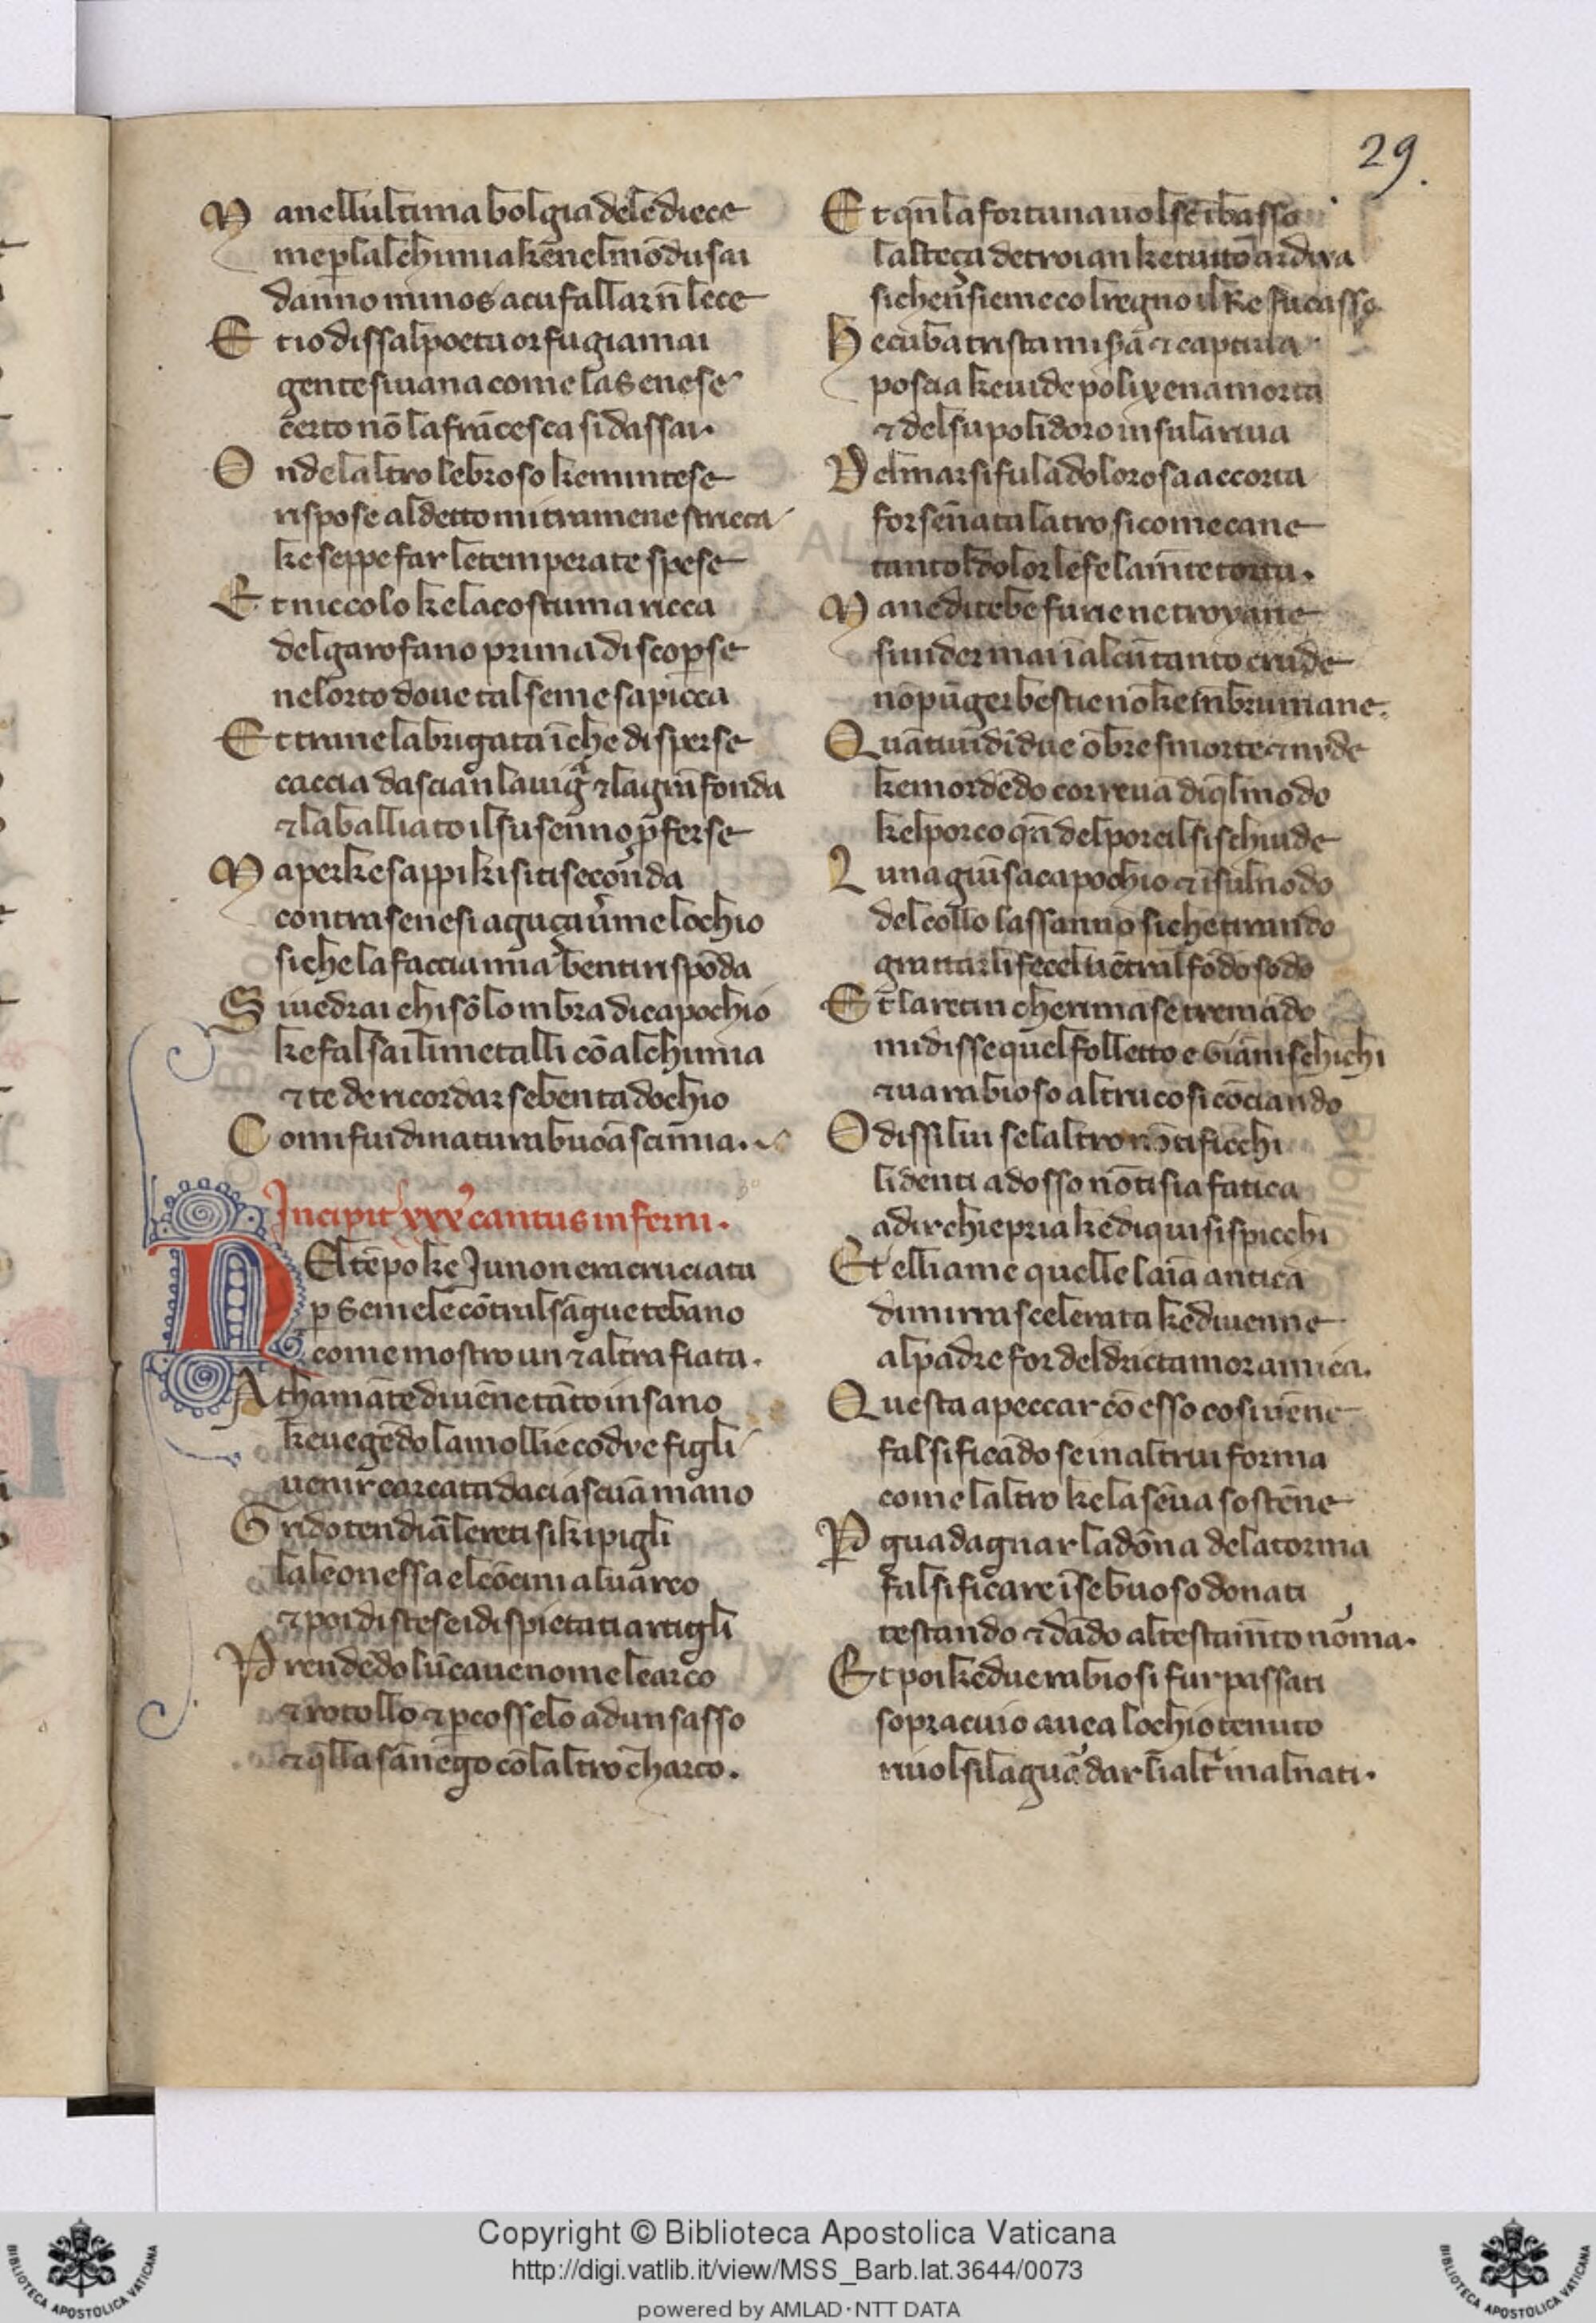 29.
M anellultima bolgia dele diece
me p lalchimia kēnelmōdusai
danno minos acu fallar n̄ lece
E t io dissalpoeta or fu giamai
gente si uana come la senese
certo nō la frācesca sidassai.
O nde laltro lebroso kemintese
rispose aldetto mi tramene stricca
ke seppe far le temperate spese
E t niccolo ke la costuma ricca
del garofano prima discoperse
nelorto doue tal seme sapicca
E t trane la brigata ī che disperse
caccia dascian lauigᵃ ⁊ la grā fonda
⁊ laballiato il su senno p̄ferse
M a perke sappi ki si ti seconda
contra senesi aguça uer me lochio
si che la faccia mia ben ti rispōda
S i uedrai chi sō lombra di capochio
ke falsai li metalli cō alchimia
⁊ te de ricordar se ben tadochio
C omi fui di natura buōa scimia.
Incipit xxx cantus inferni.
N El tēpo ke Junon era cruciata
p semele cōtral sāgue tebano
come mostro un ⁊ altra fiata.
A thamāte diuēne tāto insano
ke uegēdo la mollie co due figli
uenir carcata da ciascūa mano
G rido tendiā le reti si ki pigli
la leonessa e leōcini al uarco
⁊ poi distese i dispietati artigli
P rendēdo lū caue nome learco
⁊ rotollo ⁊ pcosselo ad un sasso
⁊ qlla sānego cōlaltro charco.
E t qn̄ la fortuna uolse ībasso
lalteça de troian ke tutto ardiua
si chen̄sieme col regno il Re fu casso
H ecuba trista mis̄a ⁊ captiua
poscia ke uide polixena morta
⁊ del su polidoro insula riua
D el mar si fu la dolorosa accorta
forsēnata latro si come cane
tanto l dolor le fe la m̄te torta.
M a ne di tebe furie ne troyane
si uider mai ī alcū tanto crude
nō pūger bestie nō ke mēbrumane.
Q uāt uidi due ōbre smorte ⁊ nude
ke mordēdo correuā di ql modo
kel porco qn̄ del porcil si schiude
L una giunse a capochio ⁊ ī sul nodo
del collo lassanno si che tirando
grattar li fece l uētral fōdo sodo
E t laretin che rimase tremādo
mi disse quel folletto e Gianni schichi
⁊ ua rabioso altrui cosi cōciando
O dissi lui se laltro nō ti ficchi
li denti adosso nō ti sia fatica
a dir chi e pria ke di qui si spicchi
E t elli a me quelle laīa antica
di mirra scelerata ke diuenne
al padre for del dricta mor amica.
Q uesta a peccar cō esso cosi uēne
falsificādo se in altrui forma
come laltro ke la sēua sostēne
P guadagnar la dōna de la torma
falsificare ī se buoso donati
testando ⁊ dādo al testam̄to norma.
E t poi ke due rabiosi fur passati
sopra cui io auea lochio tenuto
riuolsila guardar li altri mal nati.
Copyright © Biblioteca Apostolica Vaticana
http://digi.vatlib.it/view/MSS_Barb.lat.3644/0073
powered by AMLAD·NTT DATA
BIBLIOTECA APOSTOLICA VATICANA
BIBLIOTECA APOSTOLICA VATICANA